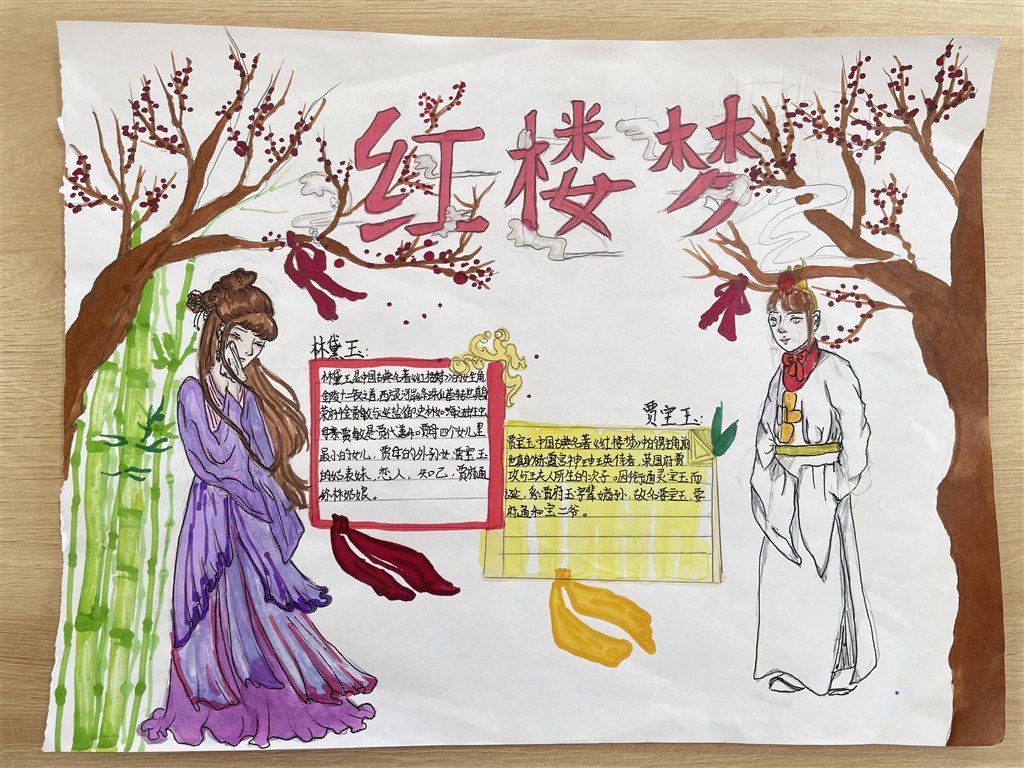 红楼梦
林黛玉:
林黛玉是中国古典名著《红楼梦》的女主角
金陵十二钗之首,西方灵河岸绛珠仙草转世真身
荣府千金贾敏与巡盐御史林如海之独生女
母亲贾敏是贾代善和贾母四个女儿里
最小的女儿,贾母的外孙女,贾宝玉
的姑表妹,恋人,知己,贾府通
称林姑娘。
贾宝玉:
贾宝玉,中国古典名著《红楼梦》中的男主角,前
世真身为赤霞宫神瑛侍者,荣国府贾
政与王夫人所生的次子。因衔通灵宝玉而
诞,系贾府玉字辈嫡孙,故名贾宝玉,贾
府通称宝二爷。